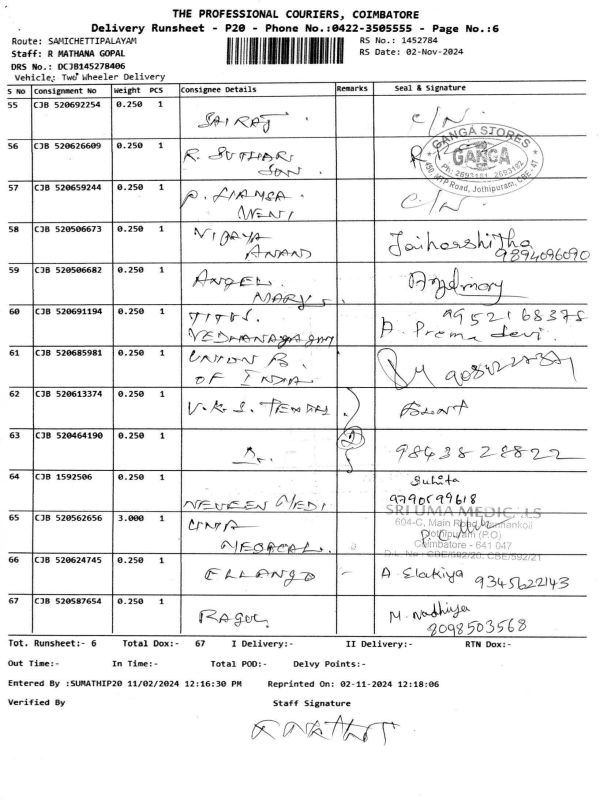 THE PROFESSIONAL COURIERS, COIMBATORE
Delivery Runsheet - P20 - Phone No.:0422-3505555 - Page No.:6
Route: SAMICHETTIPALAYAM
RS No.: 1452784
Staff: R MATHANA GOPAL
RS Date: 02-Nov-2024
DRS No.: DCJB145278406
Vehicle: Two Wheeler Delivery
S No Consignment No Weight PCS Consignee Details Remarks Seal & Signature
55 CJB 520692254 0.250 1 SAIRAJ C/N.
56 CJB 520626609 0.250 1 R. SUTHAR
SON GANGA STORES
GANGA
MTP Road, Jothipuram, CBE-47
57 CJB 520659244 0.250 1 P. C/N.
VENI
58 CJB 520506673 0.250 1 VIJAYA
ANAND Jaiharshitha
9894096090
59 CJB 520506682 0.250 1 ANGEL
MARY
60 CJB 520691194 0.250 1 TITUS 9952168378
A. Prema devi.
61 CJB 520685981 0.250 1 UNION B.
OF INDIA
62 CJB 520613374 0.250 1 V.K.S.
63 CJB 520464190 0.250 1 9843828822
64 CJB 1592506 0.250 1 NEVEEN MEDI
Suhita
65 CJB 520562656 3.000 1 UMA
MEDICAL. SRI UMA MEDICALS
604-C, Main Road,
Jothipuram (P.O)
Coimbatore - 641 047
66 CJB 520624745 0.250 1 ELLANGO A. Elakiya 9345622143
67 CJB 520587654 0.250 1 RAGU M. Nadhiya
8098503568
Tot. Runsheet:- 6 Total Dox:- 67 I Delivery:- II Delivery:- RTN Dox:-
Out Time:- In Time:- Total POD:- Delvy Points:-
Entered By :SUMATHIP20 11/02/2024 12:16:30 PM Reprinted On: 02-11-2024 12:18:06
Verified By Staff Signature